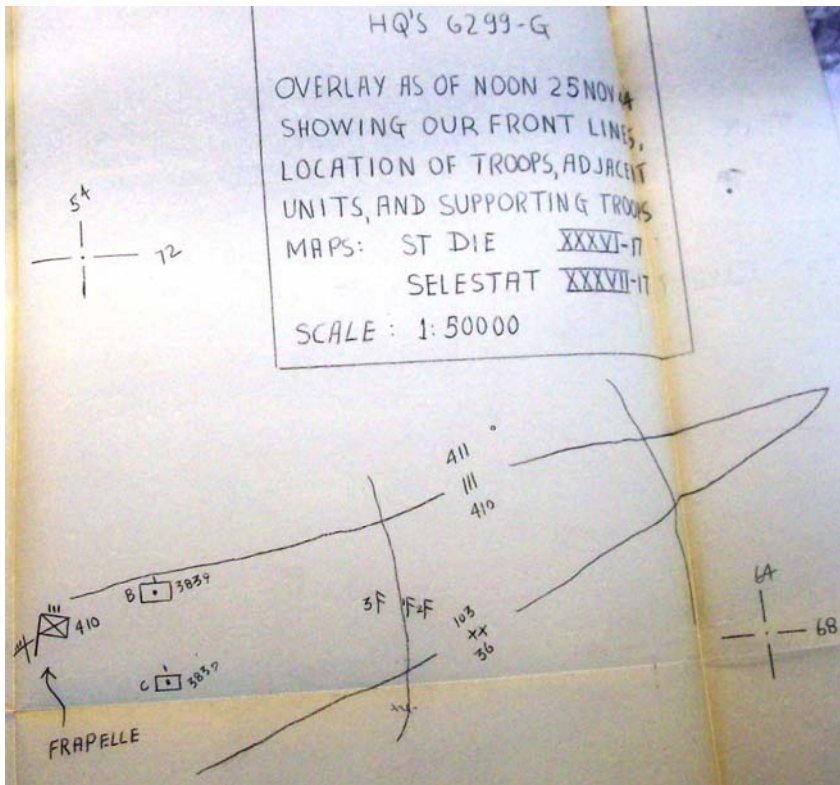 HQ'S 6299-G
OVERLAY AS OF NOON 25 NOV 44
SHOWING OUR FRONT LINES,
LOCATION OF TROOPS, ADJACENT
UNITS, AND SUPPORTING TROOPS
MAPS: ST DIE XXXVI-17
SELESTAT XXXVII-17
SCALE : 1:50000
54
72
411
III
410
B
3839
III
410
3F
103
XX
36
64
68
C
FRAPELLE